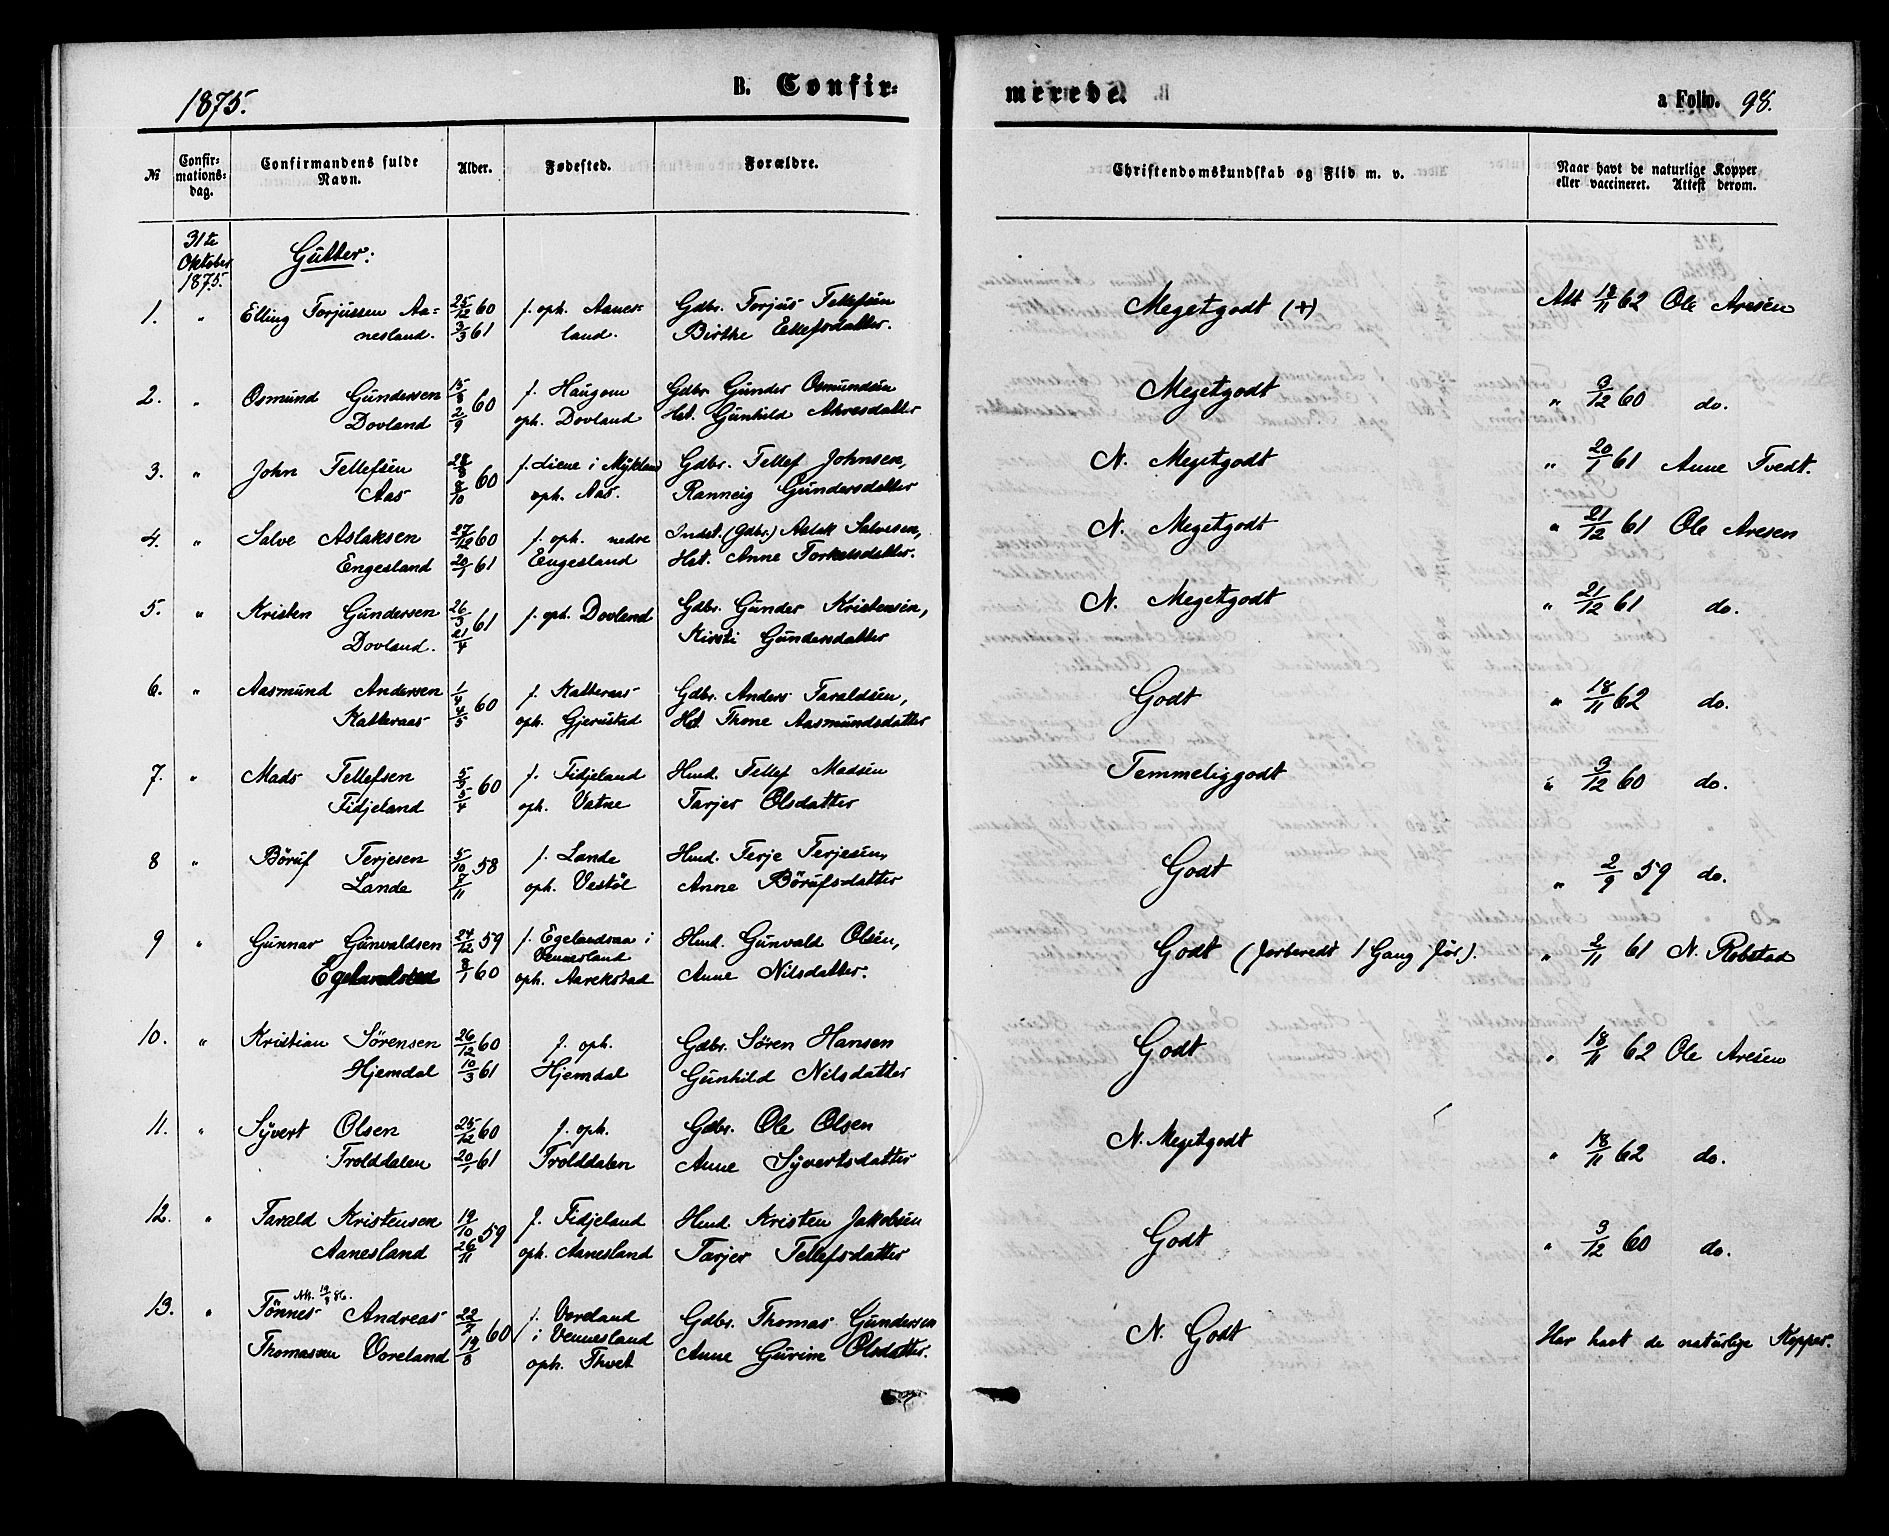 1875.
B. Confirmerede.
a Folio. 98.
№ Confirmationsdag. Confirmandens fulde Navn. Alder. Fødested. Forældre. Christendomskundskab og Flid m. v. Naar havt de naturlige Kopper eller vaccineret. Attest derom.
31te Oktober 1875. Gutter:
1. " Elling Torjussen Aa- 25/12 60 f. oph. Aanes- Gdbr. Torjus Tellefsen Megetgodt (+) Att 18/11 62 Ole Aresen
nesland. 3/3 61 land. Birthe Ellefsdatter.
2. " Osmund Gundersen 15/8 60 f. Haugom Gdbr. Gunder Osmundsen Megetgodt " 3/12 60 do.
Dovland 2/9 oph. Dovland Hst. Gunhild Alvesdatter
3. " John Tellefsen 28/9 60 f. Liene i Mykland Gdbr. Tellef Johnsen, N. Megetgodt " 20/1 61 Anne Tvedt.
Aas 8/10 oph. Aas. Ranneig Gundersdatter
4. " Salve Aslaksen 27/12 60 f. oph. nedre Indst. (Gdbr.) Aslak Salvesen, N. Megetgodt " 21/12 61 Ole Aresen
Engesland 20/1 61 Engesland Hst. Anne Torkelsdatter.
5. " Kristen Gundersen 26/3 61 f. oph. Dovland Gdbr. Gunder Kristensen, N. Megetgodt " 21/12 61 do.
Dovland. 21/4 Kirsti Gundersdatter
6. " Aasmund Andersen 1/4 60 f. Katteraas Gdbr. Anders Taraldsen, Godt " 18/11 62 do.
Katteraas 4/5 oph. Gjerustad Hst. Thone Aasmundsdatter
7. " Mads Tellefsen 5/3 60 f. Fidjeland Hmd. Tellef Madsen Temmeliggodt " 3/12 60 do.
Fidjeland 5/4 oph. Vatne Tarjer Olsdatter
8 " Böruf Terjesen 5/10 58 f. Lande Hmd. Terje Terjesen, Godt " 2/9 59 do.
Lande 7/11 oph. Vestöl Anne Börufsdatter
9 " Gunnar Gunvaldsen 24/12 59 f. Egelandsaa i Hmd. Gunvald Olsen, Godt (forberedt 1 Gang för). " 2/11 61 N. Robstad
8/1 60 Vennesland oph. Aarekstad Anne Nilsdatter.
10. " Kristian Sörensen 26/12 60 f. oph. Gdbr. Sören Hansen Godt " 18/11 62 Ole Aresen
Hjemdal 10/3 61 Hjemdal Gunhild Nilsdatter
11. " Syvert Olsen 25/12 60 f. oph. Gdbr. Ole Olsen N. Megetgodt " 18/11 62 do.
Trolddalen 20/1 61 Trolddalen Anne Syvertsdatter
12. " Tarald Kristensen 19/10 59 f. Fidjeland Hmd. Kristen Jakobsen Godt " 3/12 60 do.
Aanesland 26/11 oph. Aanesland Tarjer Tellefsdatter
Att. 19/3 86.
13. " Tönnes Andreas 22/7 60 f. Voreland Gdbr. Thomas Gundersen N. Godt Har havt de naturlige Kopper.
Thomassen Voreland 19/8 i Vennesland oph. Thvet Anne Gurine Olsdatter.